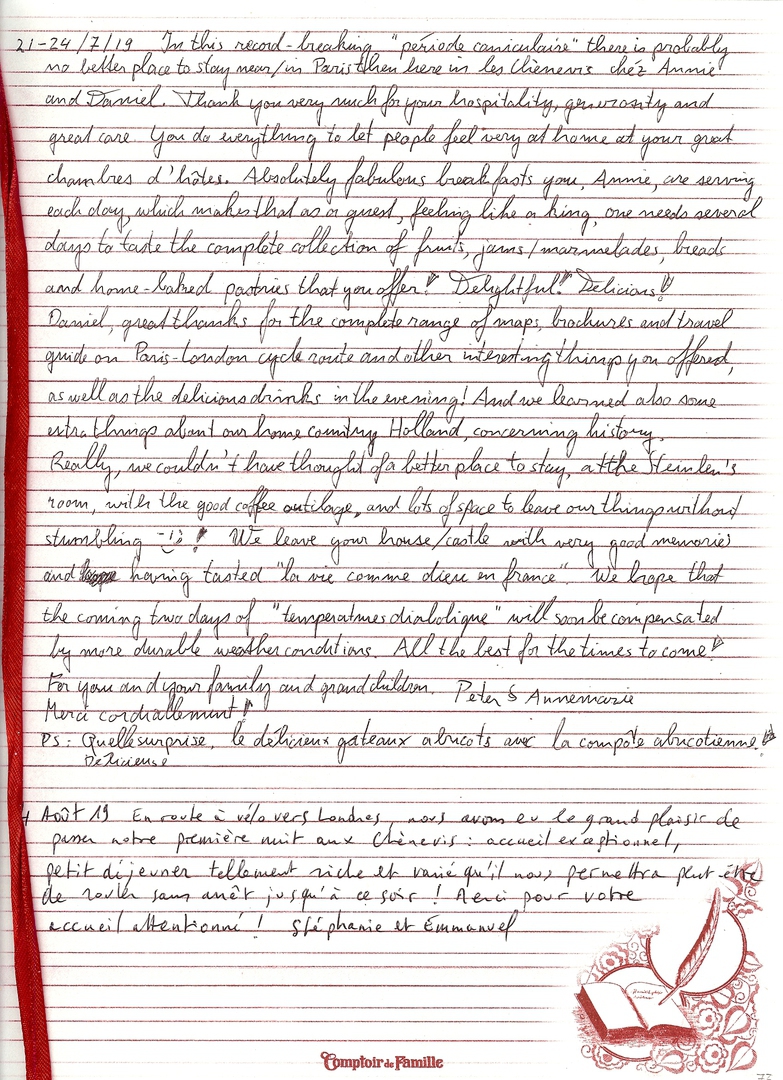 21-24/7/19 In this record-breaking "période caniculaire" there is probably
no better place to stay near/in Paris then here in les Chènevis chéz Annie
and Daniel. Thank you very much for your hospitality, generosity and
great care. You do everything to let people feel very at home at your great
chambres d'hâtes. Absolutely fabulous breakfasts you, Annie, are serving
each day, which makes that as a guest, feeling like a king, one needs several
days to taste the complete collection of fruits, jams/marmelades, breads
and home-baked pastries that you offer! Delightful! Delicious!
Daniel, great thanks for the complete range of maps, brochures and travel
guide on Paris-London cycle route and other interesting things you offered,
as well as the delicious drinks in the evening! And we learned also some
extra things about our home country Holland, concerning history.
Really, we couldn't have thought of a better place to stay, at the Steinlen's
room, with the good coffee outilage, and lots of space to leave our things without
stumbling! We leave your house/castle with very good memories
and having tasted "la vie comme dieu en france". We hope that
the coming two days of "temperatures diabolique" will soon be compensated
by more durable weather conditions. All the best for the times to come!
For you and your family and grandchildren. Peter & Annemarie
Merci cordiallement!
PS: Quelle surprise, le délicieux gateaux abucots avec la compôte abricotienne!
Délicieuse
Août 19 En route à vélo vers Londres, nous avons eu le grand plaisir de
passer notre première nuit aux Chènevis : accueil exceptionnel,
petit déjeuner tellement riche et varié qu'il nous permettra peut être
de rouler sans arrêt jusqu'à ce soir ! Merci pour votre
accueil attentionné ! Stéphanie et Emmanuel
Comptoir de Famille
73